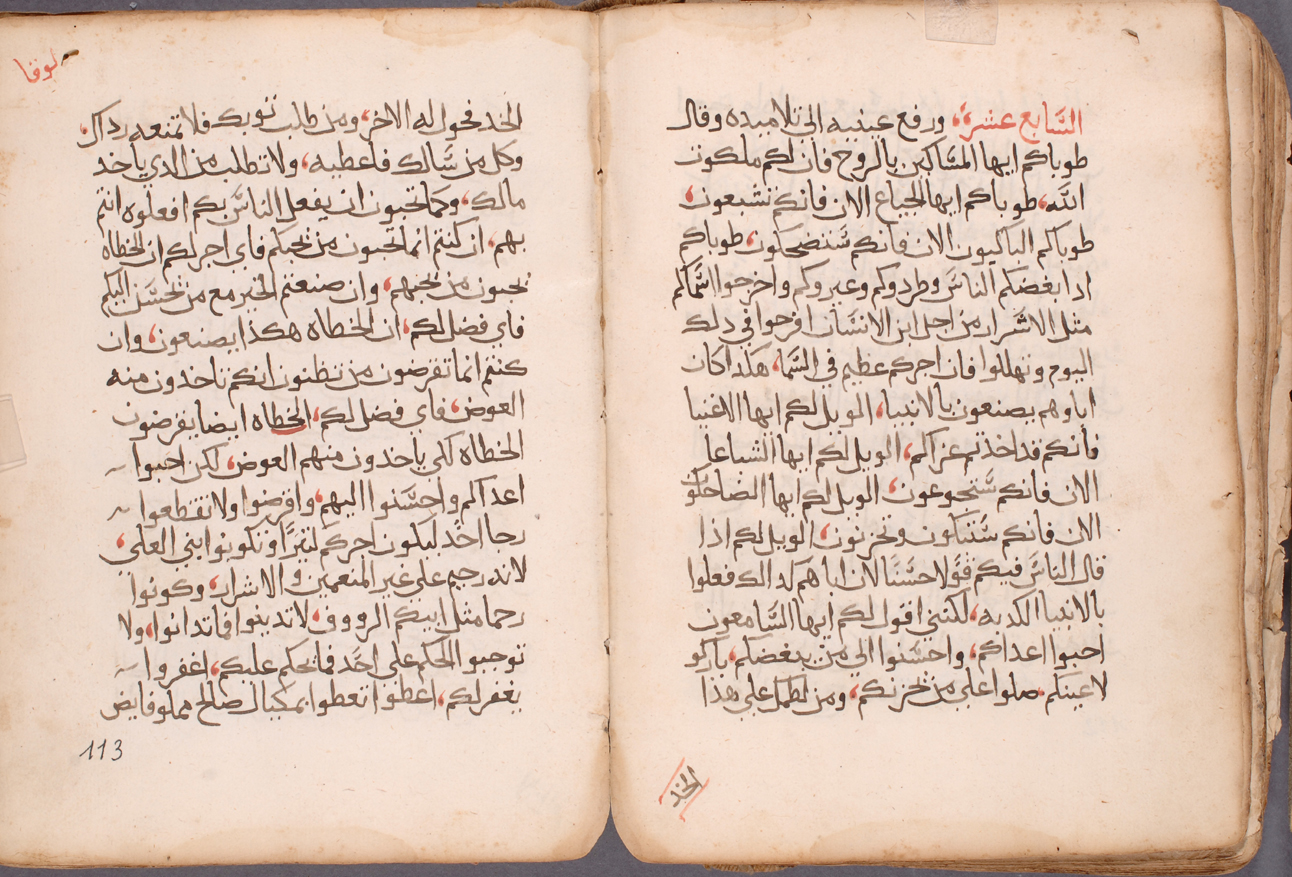 السَّابع عشر، ورفع عينيه الى تلاميده وقال
طوباكم ايها المسَّاكين بالروح فان لكم ملكوت
الله، طوباكم ايها الجياع الان فانكم تشبعون،
طوباكم الباكيون الان فانكم سَّتضحكون، طوباكم
ادا بغضكم الناسَّ وطردوكم وعيروكم واخرجوا اسَّماكم
مثل الاشَّرار من اجل ابن الانسَّان افرحوا في دلك
اليوم وتهللوا فان اجركم عظيم في السَّما، هكدا كان
اباوهم يصنعون بالانبيا، الويل لكم ايها الاغنيا
فانكم قد اخدتم عزاكم، الويل لكم ايها الشباعا
الان فانكم سَّتجوعون، الويل لكم ايها الضاحكون
الان فانكم سَّتبكون وتحزنون، الويل لكم ادا
قال الناسَّ فيكم قَولا حسَّنًا لان اباهم كدالك فعلوا
بالانبيا الكدبه، لكنني اقول لكم ايها السَّامعون
احبوا اعداكم، واحسَّنوا الي من يبغضكم، باركو
لاعينكم صلوا على من تحزنكم، ومن لطمك علي هذا
الخد
لوقا
الخد فحول له الاخر، ومن طلب ثوبك فلا تمنعه رداك،
وكل من سَّالك فاعطيه، ولا تطلب من الدي ياخد
مالك، وكما تحبون ان يفعل الناسَّ بكم افعلوه انتم
بهم، ان كنتم انما تحبون من يحبكم فاي اجر لكم ان الخطاه
تحبون من يحبهم، وان صنعتم الخير مع من يحسَّن اليكم
فاي فضل لكم، ان الخطاه هكذا يصنعون، وان
كنتم انما تقرضون من تظنون انكم تاخدون منه
العوض، فاي فضل لكم، الخطاه ايضا يقرضون
الخطاه لكي ياخدون منهم العوض، لكن احبوا
اعداكم واحسَّنوا اليهم، واقرضوا ولا تقطعوا
رجا احَد ليكون اجركم كثيرًا وتكونوا بني العلي،
لانه رحيم على غير المنعمين والاشرار، وكونوا
رحما مثل ابيكم الرووف، لا تدينوا فما تدانوا، ولا
توجبوا الحكم على احَد فما يحكم عليكم، اغفروا
يغفر لكم، اعطوا تعطوا بمكيال صالح مملو فايض
113